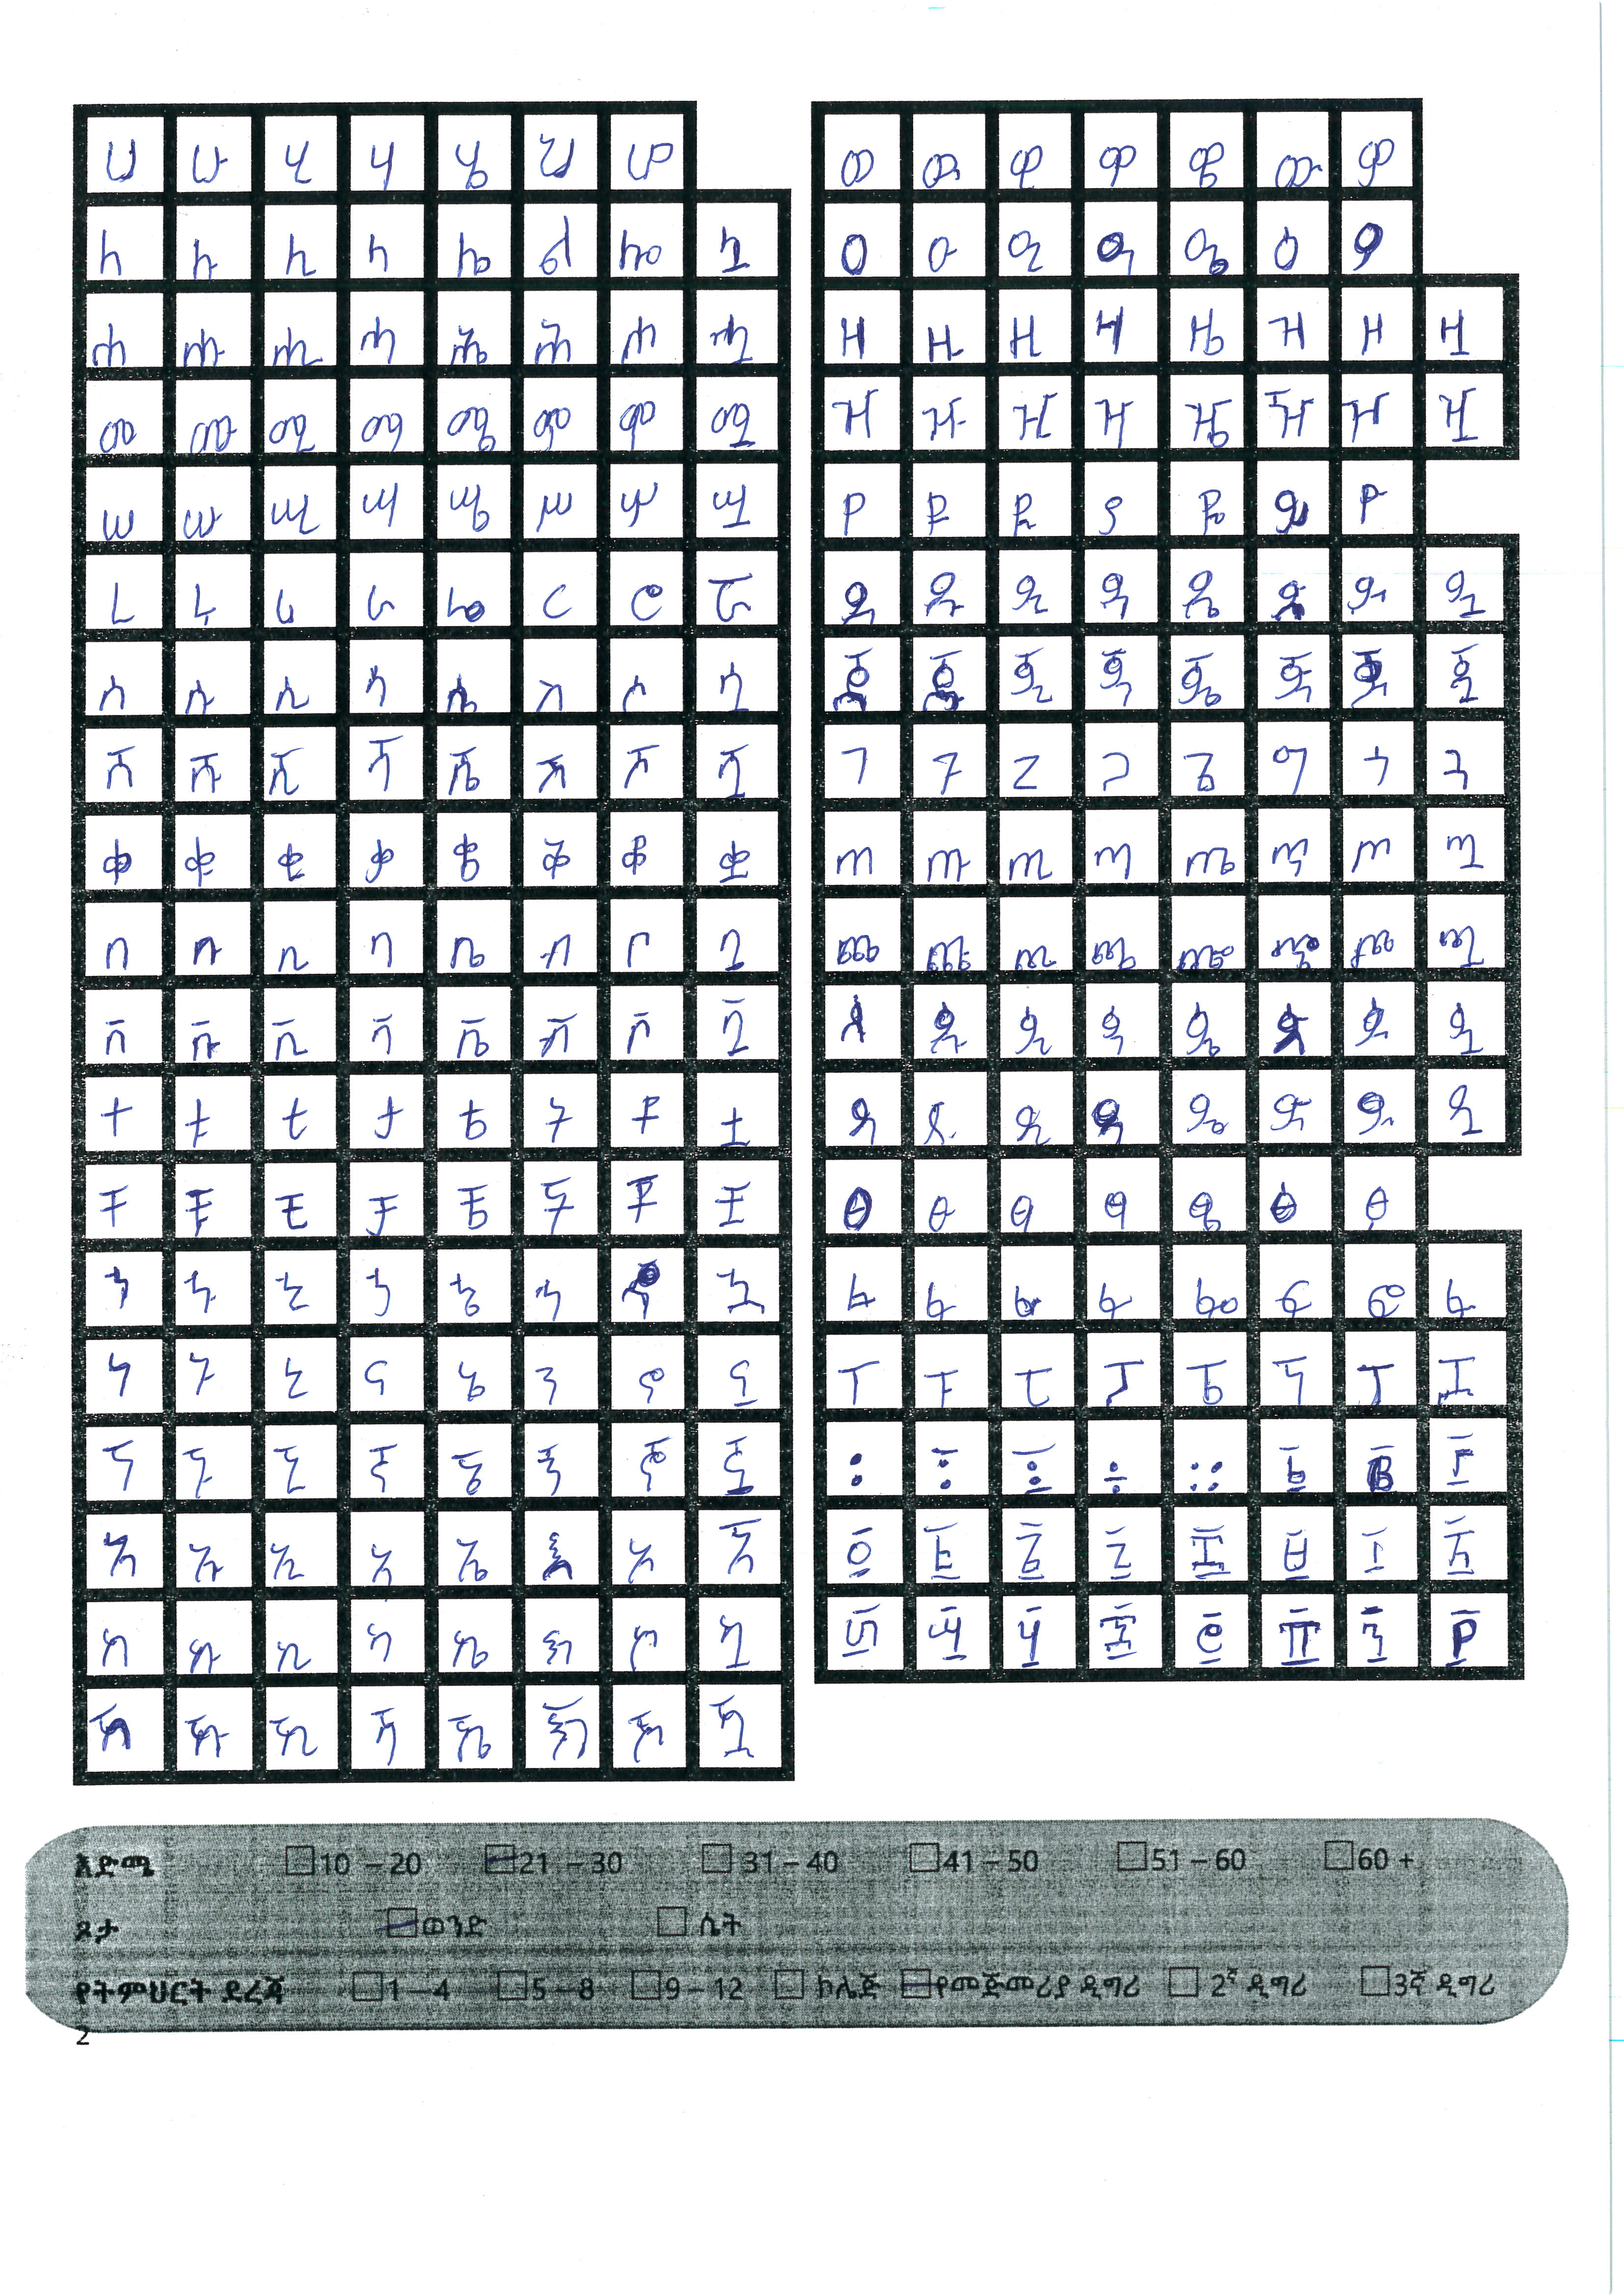 ሀ ሁ ሂ ሃ ሄ ህ ሆ
ለ ሉ ሊ ላ ሌ ል ሎ ሏ
ሐ ሑ ሒ ሓ ሔ ሕ ሖ ሗ
መ ሙ ሚ ማ ሜ ም ሞ ሟ
ሠ ሡ ሢ ሣ ሤ ሥ ሦ ሧ
ረ ሩ ሪ ራ ሬ ር ሮ ሯ
ሰ ሱ ሲ ሳ ሴ ስ ሶ ሷ
ሸ ሹ ሺ ሻ ሼ ሽ ሾ ሿ
ቀ ቁ ቂ ቃ ቄ ቅ ቆ ቋ
በ ቡ ቢ ባ ቤ ብ ቦ ቧ
ቨ ቩ ቪ ቫ ቬ ቭ ቮ ቯ
ተ ቱ ቲ ታ ቴ ት ቶ ቷ
ቸ ቹ ቺ ቻ ቼ ች ቾ ቿ
ኀ ኁ ኂ ኃ ኄ ኅ ኆ ኋ
ነ ኑ ኒ ና ኔ ን ኖ ኗ
ኘ ኙ ኚ ኛ ኜ ኝ ኞ ኟ
አ ኡ ኢ ኣ ኤ እ ኦ ኧ
ከ ኩ ኪ ካ ኬ ክ ኮ ኳ
ኸ ኹ ኺ ኻ ኼ ኽ ኾ ዃ
ወ ዉ ዊ ዋ ዌ ው ዎ
ዐ ዑ ዒ ዓ ዔ ዕ ዖ
ዘ ዙ ዚ ዛ ዜ ዝ ዞ ዟ
ዠ ዡ ዢ ዣ ዤ ዥ ዦ ዧ
የ ዩ ዪ ያ ዬ ይ ዮ
ደ ዱ ዲ ዳ ዴ ድ ዶ ዷ
ጀ ጁ ጂ ጃ ጄ ጅ ጆ ጇ
ገ ጉ ጊ ጋ ጌ ግ ጎ ጓ
ጠ ጡ ጢ ጣ ጤ ጥ ጦ ጧ
ጨ ጩ ጪ ጫ ጬ ጭ ጮ ጯ
ጰ ጱ ጲ ጳ ጴ ጵ ጶ ጷ
ጸ ጹ ጺ ጻ ጼ ጽ ጾ ጿ
ፀ ፁ ፂ ፃ ፄ ፅ ፆ
ፈ ፉ ፊ ፋ ፌ ፍ ፎ ፏ
ፐ ፑ ፒ ፓ ፔ ፕ ፖ ፗ
፡ ፣ ፤ ÷ ። ፩ ፪ ፫
፬ ፭ ፮ ፯ ፰ ፱ ፲ ፳
፴ ፵ ፶ ፷ ፸ ፹ ፺ ፻
እድሜ 10 – 20 21 – 30 31 – 40 41 – 50 51 – 60 60 +
ጾታ ወንድ ሴት
የትምህርት ደረጃ 1 – 4 5 – 8 9 – 12 ኮሌጅ የመጅመሪያ ዲግሪ 2ኛ ዲግሪ 3ኛ ዲግሪ
2